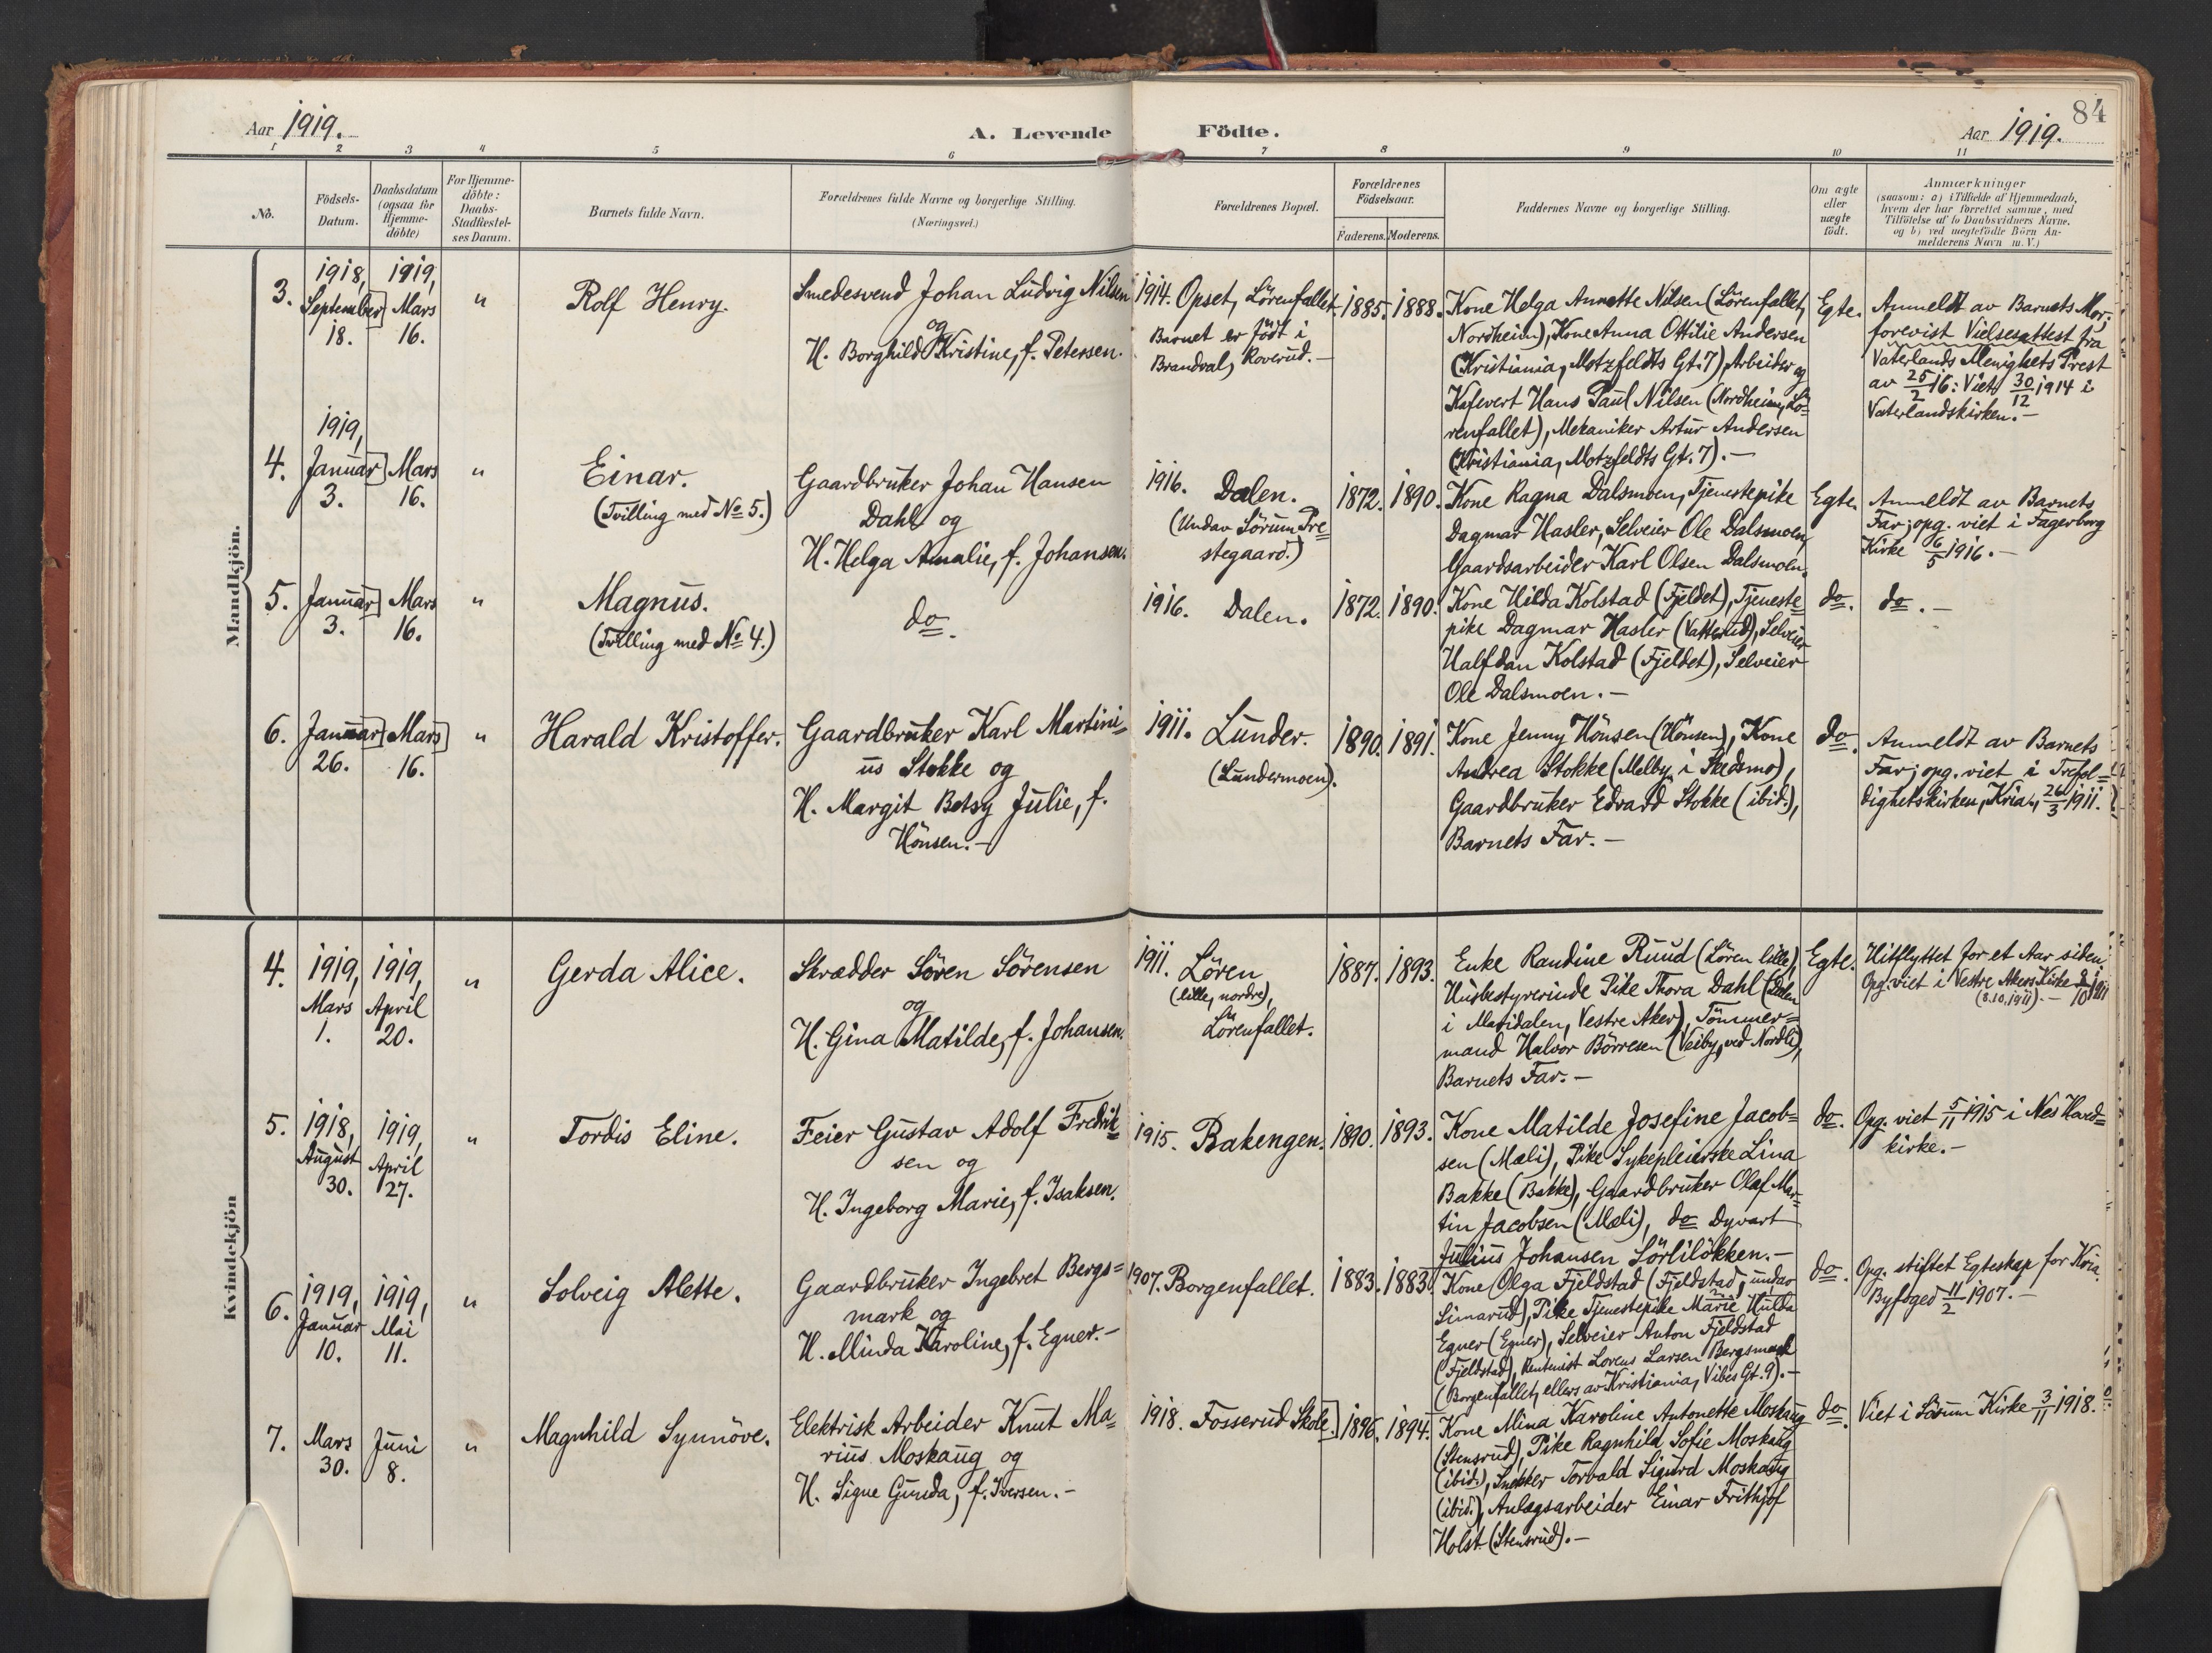 Aar 1919.
A. Levende Födte.
84
Aar 1919.
1 2 3 4 5 6 7 8 9 10 11
No.
Födsels-
Datum.
Daabsdatum
(ogsaa för
Hjemme-
döbte)
For Hjemme-
döbte:
Daabs-
Stadfæstel-
ses Datum.
Barnets fulde Navn.
Forældrenes fulde Navne og borgerlige Stilling.
(Næringsvei.)
Forældrenes Bopæl.
Forældrenes
Födselsaar.
Faderens. Moderens.
Faddernes Navne og borgerlige Stilling.
Om ægte
eller
uægte
födt.
Anmærkninger
(saasom: a) i Tilfælde af Hjemmedaab,
hvem der har forrettet samme, med
Tilföielse af to Daabsvidners Navne,
og b) ved uegtefödte Börn An-
melderens Navn m. V.)
Mandkjön.
3.
1918,
September
18.
1919,
Mars
16.
"
Rolf Henry.
Smedesvend Johan Ludvig Nilsen
og
H. Borghild Kristine, f. Petersen.
1914. Opset, Lörenfallet.
Barnet er födt i
Brandval, Roverud.-
1885. 1888.
Kone Helga Annette Nilsen (Lörenfallet,
Nordheim), Kone Anna Ottilie Andersen
(Kristiania, Motzfeldts Gt. 7), Arbeider og
Hans Paul Nilsen (Nordheim, Lö=
renfallet), Mekaniker Artur Andersen
(Kristiania, Motzfeldts Gt. 7).-
Egte.
Anmeldt av Barnets Mor;
forevist Vielsesattest fra
Vaterlands Menighets Prest
av 25/2 16: Viet 30/12 1914 i
Vaterlandskirken.-
4.
1919,
Januar
3.
Mars
16.
"
Einar.
(Tvilling med No 5.)
Gaardbruker Johan Hansen
Dahl og
H. Helga Amalie, f. Johansen.
1916. Dalen.
(Undav Sörum Pre=
stegaard.)
1872. 1890.
Kone Ragna Dalsmoen, Tjenestepike
Dagmar Hasler, Selveier Ole Dalsmoen,
Gaardsarbeider Karl Olsen Dalsmoen.
Egte.
Anmeldt av Barnets
Far; opg. viet i Fagerborg
Kirke 6/5 1916.-
5.
Januar
3.
Mars
16.
"
Magnus.
(Tvilling med No 4.)
do.
1916. Dalen.
1872. 1890.
Kone Hilda Kolstad (Fjeldet), Tjeneste=
pike Dagmar Hasler (Vatterud), Selveier
Halfdan Kolstad (Fjeldet), Selveier
Ole Dalsmoen.-
do.
do.-
6.
Januar
26.
Mars
16.
"
Harald Kristoffer.
Gaardbruker Karl Martini=
us Stokke og
H. Margit Betsy Julie, f.
Hönsen.-
1911. Lunder.
(Lundermoen).
1890. 1891.
Kone Jenny Hönsen (Hönsen), Kone
Andrea Stokke (Melby i Skedsmo),
Gaardbruker Edvard Stokke (ibid.),
Barnets Far.-
do.
Anmeldt av Barnets
Far; opg. viet i Trefol=
dighetskirken, Kria., 26/3 1911.
Kvindekjön
4.
1919,
Mars
1.
1919,
April
20.
"
Gerda Alice.
Skrædder Sören Sörensen
og
H. Gina Matilde, f. Johansen.
1911. Lören
(lille, nordre),
Lörenfallet.
1887. 1893.
Enke Randine Ruud (Lören lille),
Husbestyrerinde Pike Thora Dahl (Dalen
i Maridalen, Vestre Aker), Tömmer=
mand Halvor Börresen (Veiby, ved Nordli),
Barnets Far.-
Egte.
Hitflyttet for et Aar siden.
Opg. viet i Vestre Akers Kirke 8/10 1911
(8.10.1911).-
5.
1918,
August
30.
1919,
April
27.
"
Tordis Eline.
Feier Gustav Adolf Fredrik=
sen og
H. Ingeborg Marie, f. Isaksen.
1915. Bakengen.
1890. 1893.
Kone Matilde Josefine Jacob=
sen (Mæli), Pike Sykepleierske Lina
Bakke (Bakke), Gaardbruker Olaf Mar=
tin Jacobsen (Mæli), do Dyvart
Julius Johansen Sörlilökken.-
do.
Opg. viet 5/11 1915 i Nes Hoved=
kirke.-
6.
1919,
Januar
10.
1919,
Mai
11.
"
Solveig Alette.
Gaardbruker Ingebret Bergs=
mark og
H. Minda Karoline, f. Egner.-
1907. Borgenfallet.
1883. 1883.
Kone Olga Fjeldstad (Fjeldstad, undav
Simarud), Pike Tjenestepike Marie Hulda
Egner (Egner), Selveier Anton Fjeldstad
(Fjeldstad), Rentenist Lorens Larsen Bergsmark
(Borgenfallet, ellers av Kristiania, Vibes Gt. 9).-
do.
Opg. stiftet Egteskap for Kria.
Byfoged 11/2 1907.-
7.
Mars
30.
Juni
8.
"
Magnhild Synnöve.
Elektrisk Arbeider Knut Ma=
rius Moskaug og
H. Signe Gunda, f. Iversen.-
1918. Fosserud Skole.
1896. 1894.
Kone Mina Karoline Antonette Moskaug
(Stensrud), Pike Ragnhild Sofie Moskaug
(ibid.), Snekker Torvald Sigurd Moskaug
(ibid.), Anlægsarbeider Einar Frithjof
Holst (Stensrud).-
do.
Viet i Sörum Kirke 3/11 1918.